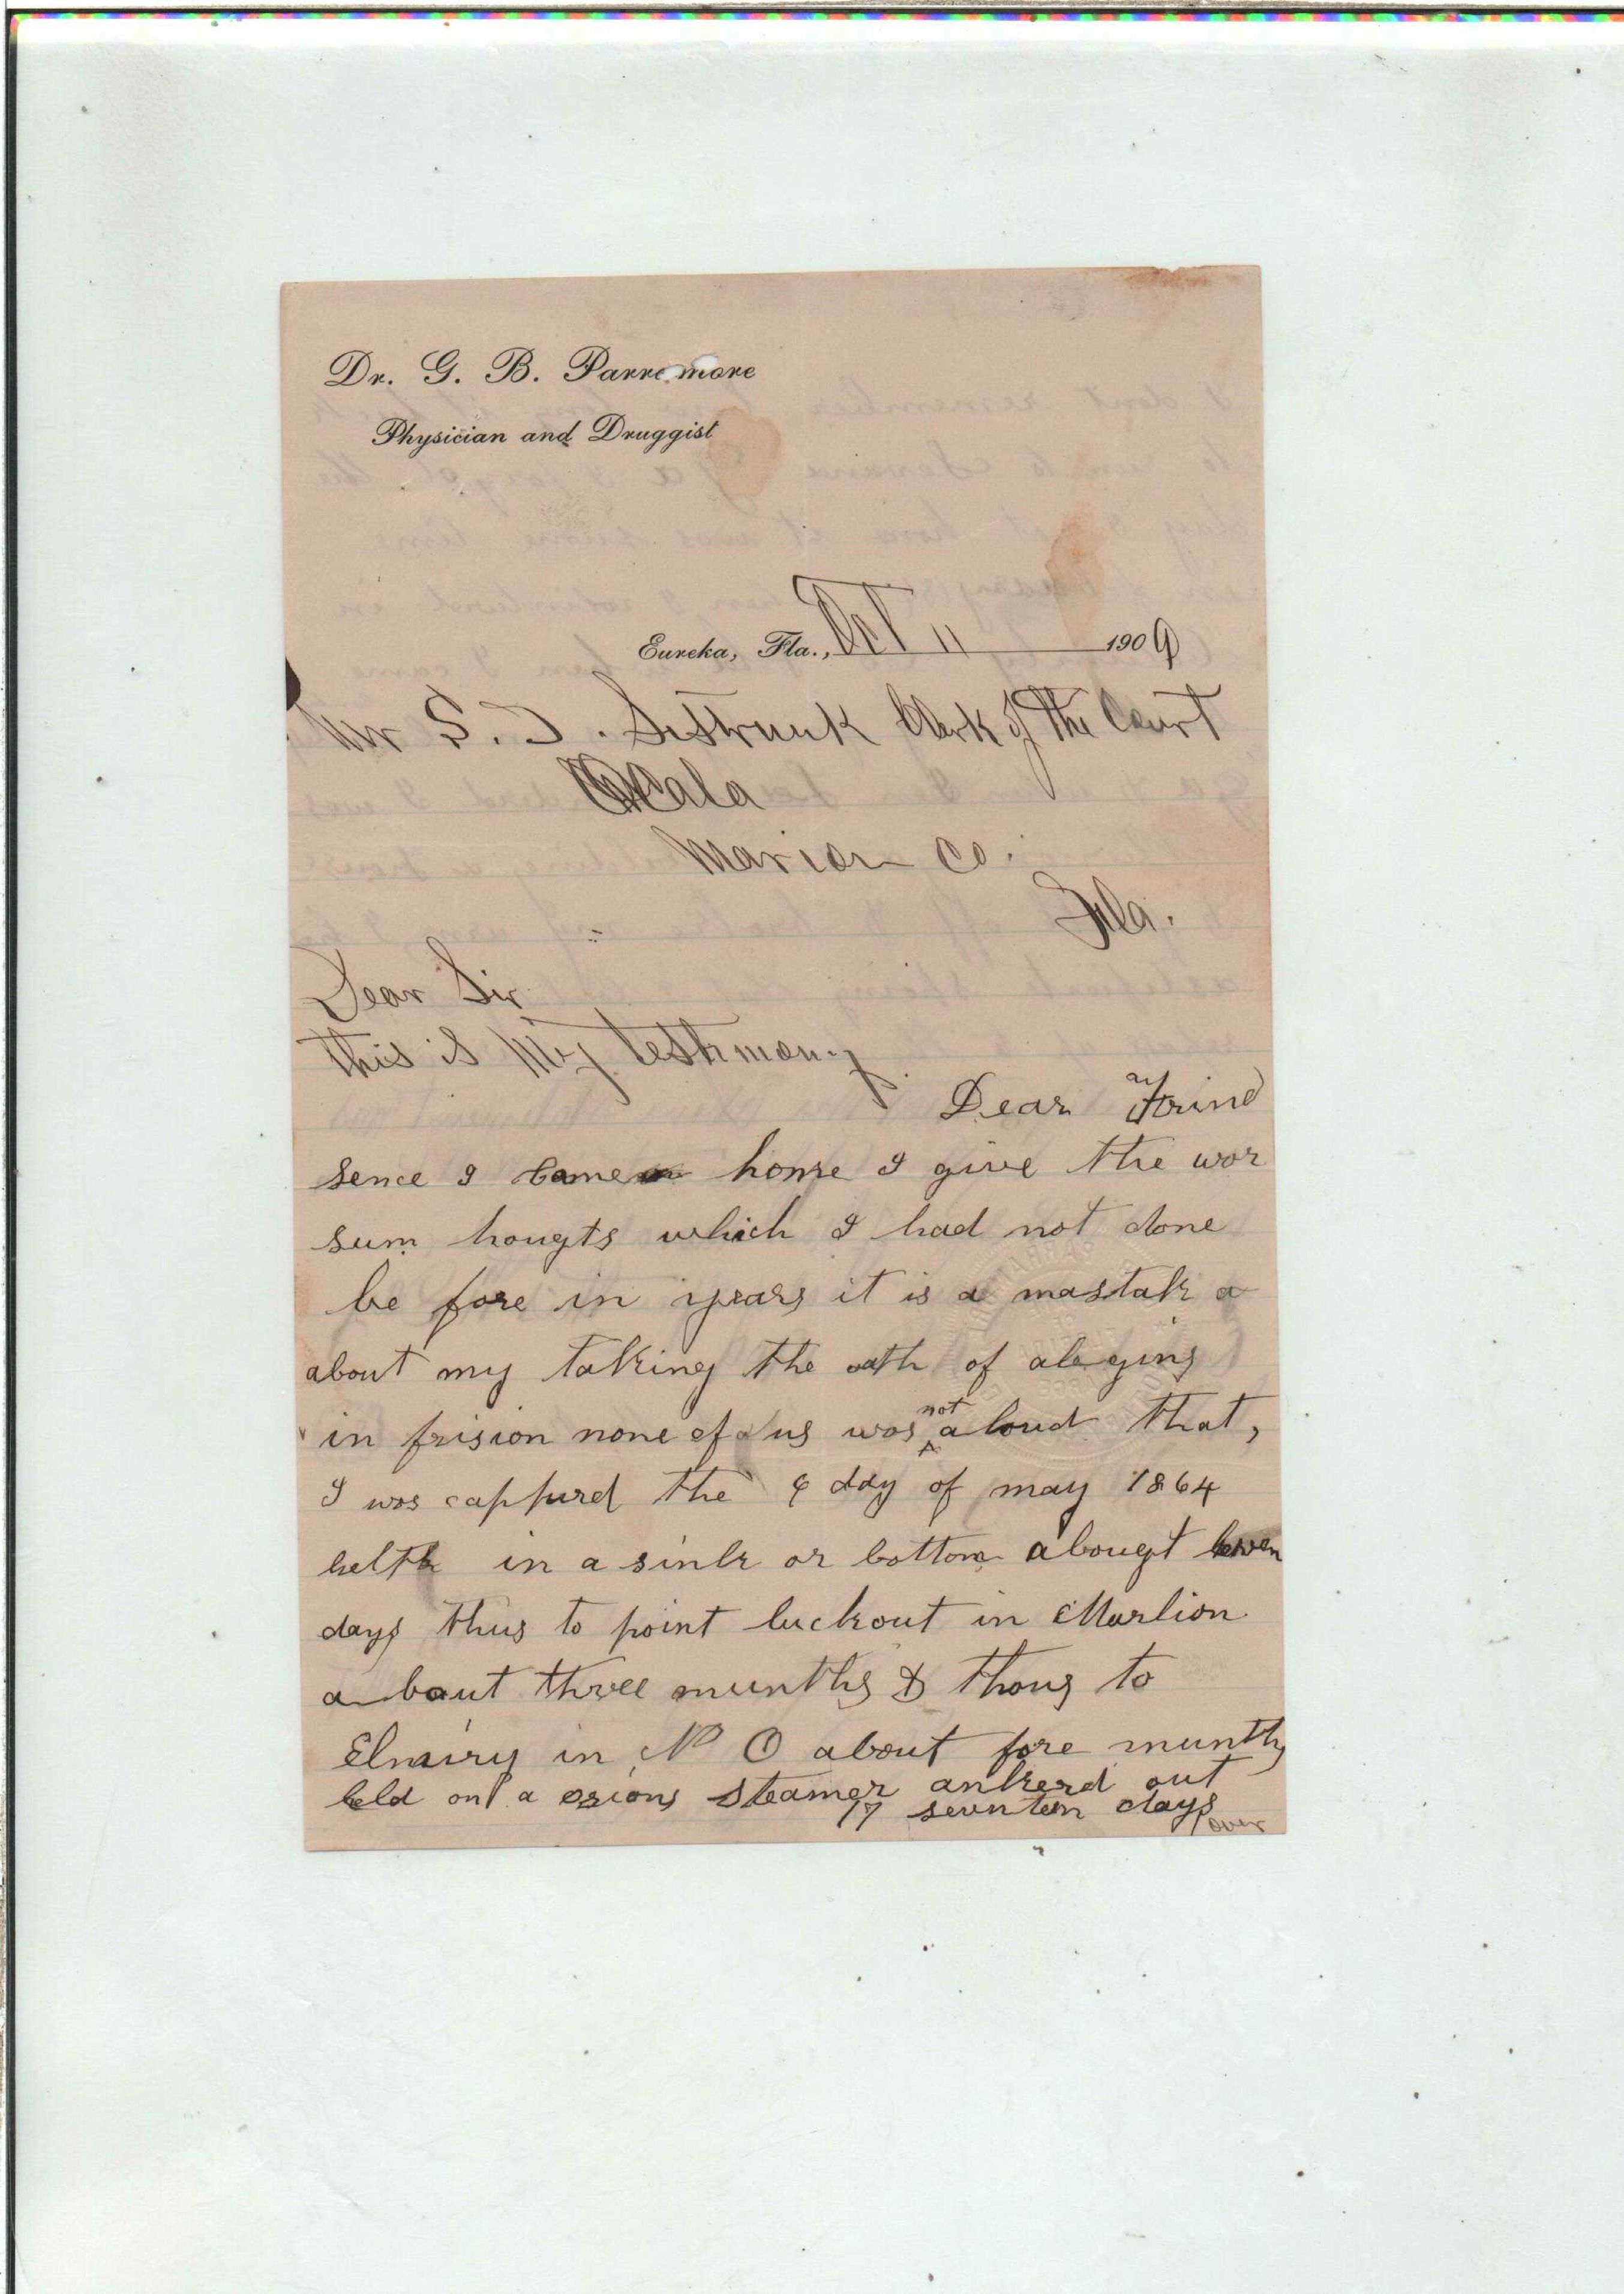 Dr. G. B. Parremore
Physician and Druggist
Eureka, Fla., Oct 11 1909
Mr S. T. Sistrunk Clerk of the Court
Ocala
Marion Co.
Fla.
Dear Sir
this is My testimony
Dear Frind
sence I came home I give the wor
sum hougts which I had not done
be fore in years it is a mastak a
about my taking the oath of aleging
in prision none of us was not aloud that,
I was cappurd the day of may 1864
helth in a sink or bottom abougt
days thus to point luckout in Marlion
a bout three munths & thous to
Elmiry in N O about fore munths
held on a osions steamer ankerd out
17 seventeen days
over